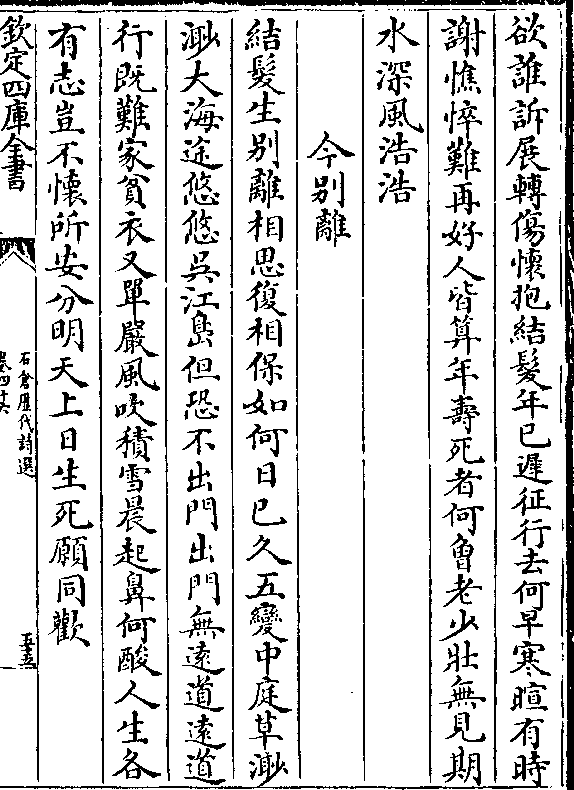 欲誰訴展轉傷懷抱結髮年已遲征行去何早寒暄有時
謝憔悴難再好人皆算年壽死者何曾老少壯無見期
水深風浩浩
今別離
結髮生別離相思復相保如何日已久五變中庭草渺
渺大海途悠悠吳江島但恐不出門出門無遠道遠道
行既難家貧衣又單嚴風吹積雪晨起鼻何酸人生各
有志豈不懷所安分明天上日生死願同歡
欽定四庫全書
石倉歷代詩選
卷四十六
五十五